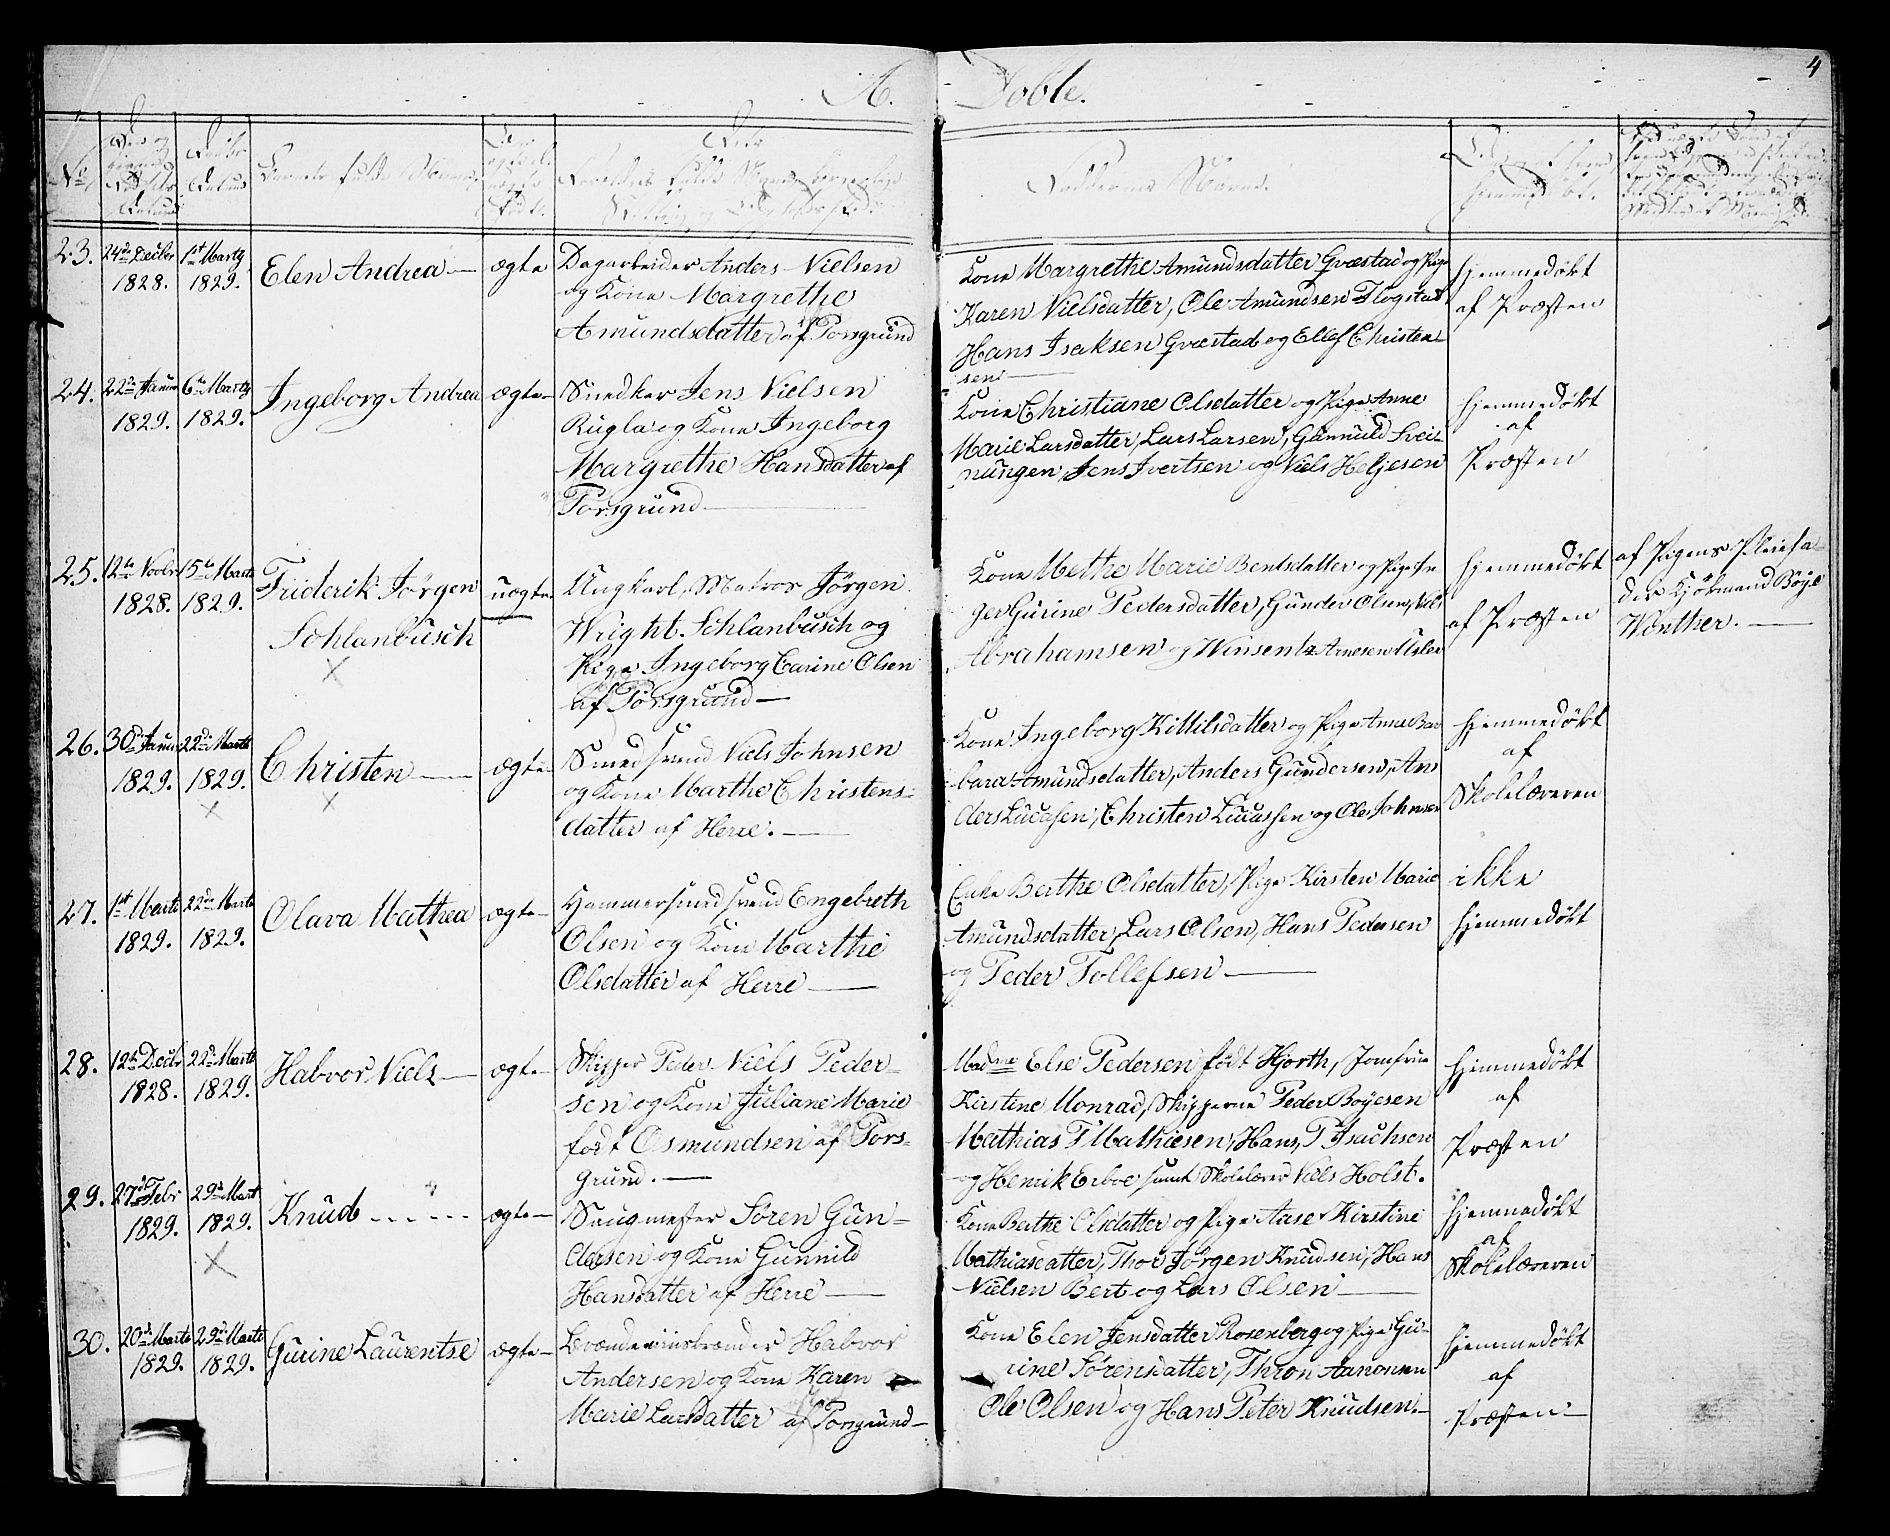 4
A. Døbte.
No
Døbte
Faddernes Navne.
23. 24de Decbr 1828. 1st Marty 1829. Elen Andrea — ægte Dagarbeider Anders Nielsen
og Kone Margrethe
Amundsdatter af Porsgrund
Kone Margrethe Amundsdatter Græstad og Pige
Karen Nielsdatter, Ole Amundsen Flogstad
Hans Isaksen Græstad og Ellef Christen-
sen
hjemmedøbt
af Præsten
24. 22de Januar 1829. 6te Marty 1829. Ingeborg Andrea ægte — Snedker Jens Nielsen
Rugla og Kone Ingeborg
Margrethe Hansdatter af
Porsgrund —
Kone Christiane Olsdatter og Pige Anne
Marie Larsdatter, Lars Larsen, Gunnuld Svei-
nungen, Jens Ivertsen og Niels Heljesen
hjemmedøbt
af
Præsten
25. 12te Novbr 1828. 15de Marts 1829. Friderik Jørgen
Schlanbusch
uægte. Ungkarl, Matros Jørgen
Wright Schlanbusch og
Pige Ingeborg Carine Olsen
af Porsgrund —
Kone Methe Marie Bentsdatter og Pige In-
ger Gurine Pedersdatter, Gunder Olsen, Niels
Abrahamsen og Winsentz Arnesen
hjemmedøbt
af Præsten
af Pigens Pleiefa-
der Kjøbmand Boye
Wønther. —
26. 30te Januar 1829. 22de Marts 1829. Christen — ægte — Smedsvend Niels Johnsen
og Kone Marthe Christens-
datter af Herre. —
Kone Ingeborg Kittilsdatter og Pige Anne Bar-
bara Amundsdatter, Anders Gundersen, An-
ders Lucasen, Christen Lucassen og Ole Johnsen
hjemmedøbt
af
Skolelæreren
27. 1st Marts 1829. 22de Marts 1829. Olava Mathea ægte — Hammersmedsvend Engebreth
Olsen og Kone Marthe
Olsdatter af Herre —
Enke Berthe Olsdatter, Pige Kirsten Marie
Amundsdatter, Lars Olsen, Hans Pedersen
og Peder Tollefsen —
ikke
hjemmedøbt
28. 12te Decbr 1828. 22de Marts 1829. Halvor Niels — ægte — Skipper Peder Niels Peder-
sen og Kone Juliane Marie
født Osmundsen af Pors-
grund. —
Madme Else Pedersen født Hjorth, Jomfrue
Kirstine Monrad, Skipperne Peder Boyesen
Mathias T Mathiesen, Hans P Isachsen
og Henrik Erboe, samt Skolelærer Niels Holst.
hjemmedøbt
af
Præsten
29. 27de Febr 1829. 29de Mart 1829. Knud ægte — Saugmester Søren Gun-
dersen og Kone Gunnild
Hansdatter af Herre —
Kone Berthe Olsdatter og Pige Aase Kirstine
Mathiasdatter, Thor Jørgen Knudsen, Hans
Nielsen Bert og Lars Olsen —
hjemmedøbt
af
Skolelæreren
30. 20de Marts 1829. 29de Marts 1829. Gurine Laurentse ægte — Brændeviinsbrænder Halvor
Andersen og Kone Karen
Marie Larsdatter af Porsgrund —
Kone Elen Jensdatter Rosenberg og Pige Gu-
rine Sørensdatter, Thron Aanonsen
Ole Olsen og Hans Peter Knudsen. —
hjemmedøbt
af
Præsten —